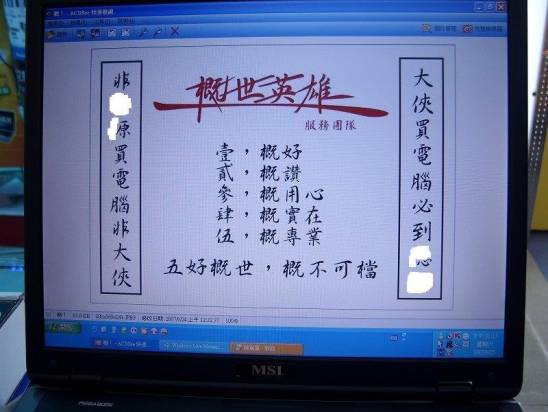 ACDSee
大俠買電腦必到
概世英雄
服務團隊
壹，概好
貳，概讚
參，概用心
肆，概實在
伍，概專業
五好概世，概不可檔
非
原買電腦非大俠
100%
MSI